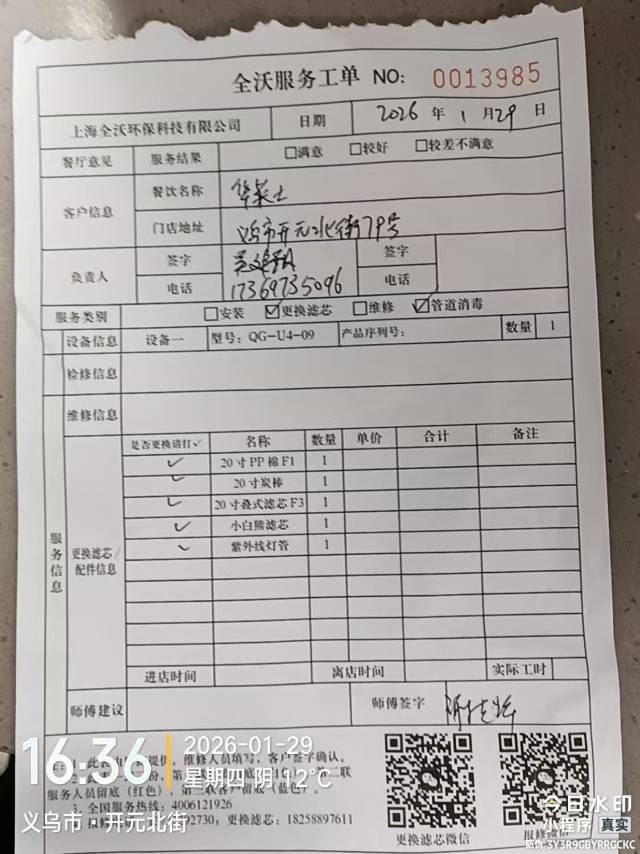 全沃服务工单 NO: 0013985
上海全沃环保科技有限公司 日期 2026 年 1 月 29 日
餐厅意见 服务结果 □满意 □较好 □较差不满意
客户信息 餐饮名称 华莱士
门店地址 义乌市开元北街79号
负责人 签字 签字
电话 17369735096 电话
服务类别 □安装 ☑更换滤芯 □维修 ☑管道消毒
设备信息 设备一 型号: QG-U4-09 产品序列号: 数量 1
检修信息
维修信息
服务信息
更换滤芯/配件信息
是否更换请打✓ 名称 数量 单价 合计 备注
✓ 20寸PP棉F1 1
✓ 20寸炭棒 1
✓ 20寸叠式滤芯F3 1
✓ 小白熊滤芯 1
✓ 紫外线灯管 1
进店时间 离店时间 实际工时
师傅建议 师傅签字
16:36 2026-01-29
星期四 阴 12℃
提供, 维修人员填写, 客户签字确认。
服务人员留底(红色), 第三联客户留底(蓝色)。
3. 全国服务热线: 4006121926
2730; 更换滤芯: 18258897611
义乌市·开元北街
更换滤芯微信 报修微信
今日水印
小程序 真实
防伪 3Y3R9GBYRRGCKC